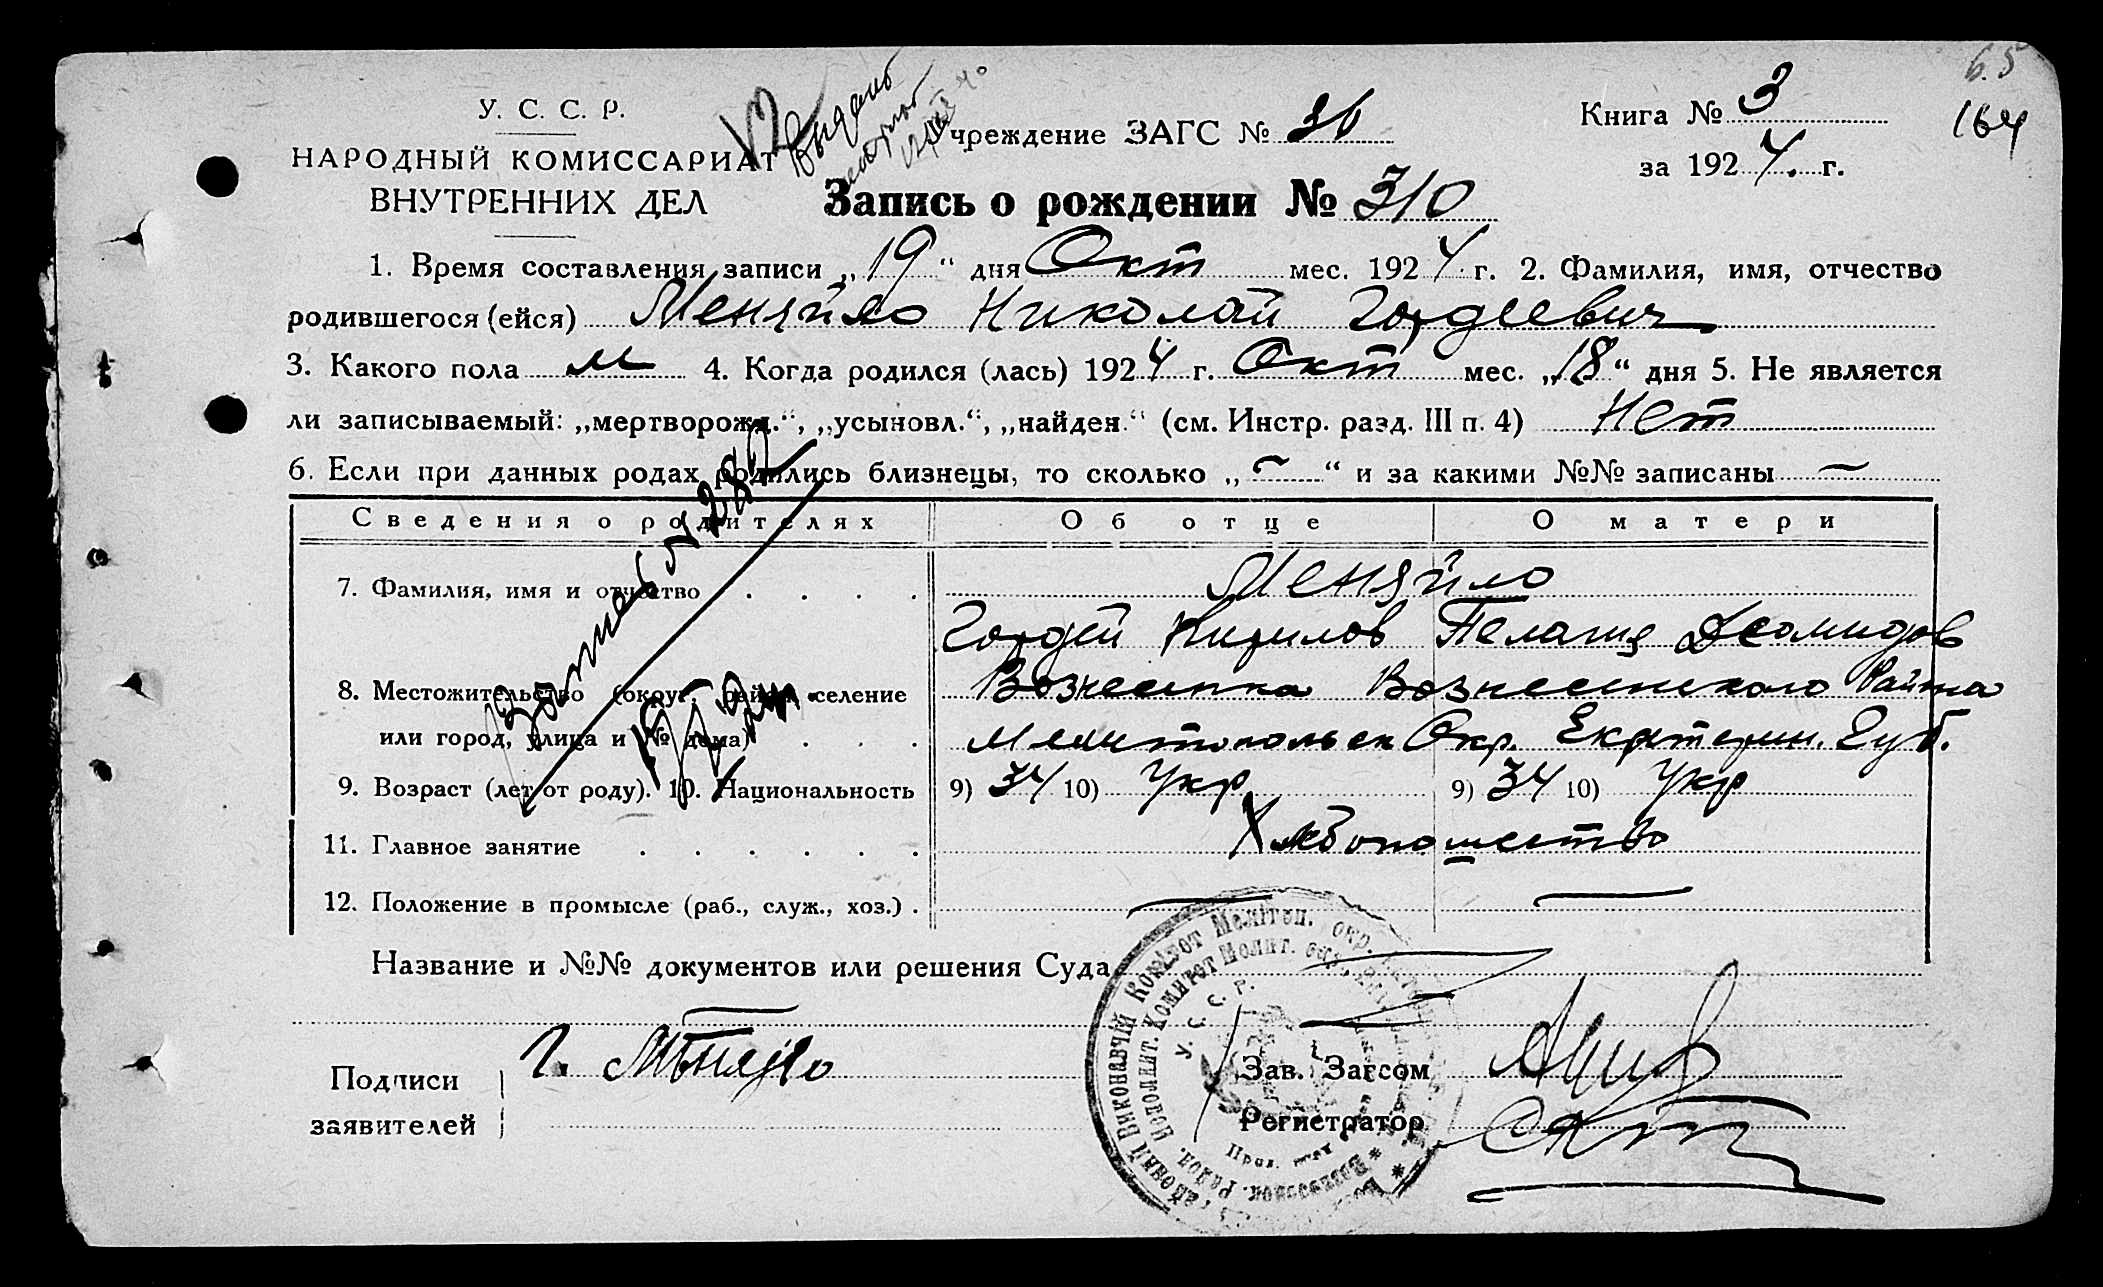 65
164
У. С. С. Р.
НАРОДНЫЙ КОМИССАРИАТ
ВНУТРЕННИХ ДЕЛ
Выдано
Учреждение ЗАГС № 36
Книга № 3
за 1924. г.
Запись о рождении № 310
1. Время составления записи „19“ дня Окт мес. 1924 г. 2. Фамилия, имя, отчество
родившегося (ейся) Меняйло Николай Гордеевич
3. Какого пола м 4. Когда родился (лась) 1924 г. Окт мес. „18“ дня 5. Не является
ли записываемый: „мертворожд.“, „усыновл.“, „найден.“ (см. Инстр. разд. III п. 4) Нет
6. Если при данных родах родились близнецы, то сколько „ — “ и за какими №№ записаны —
Сведения о родителях Об отце О матери
7. Фамилия, имя и отчество . . . . Меняйло
Гордей Кирилов Пелагия Деомидов
8. Местожительство (округ, район, селение Вознесенка Вознесенского Района
или город, улица и № дома) . . . Мелитопольск Окр. Екатерин. Губ.
9. Возраст (лет от роду). 10. Национальность 9) 34 10) Укр 9) 34 10) Укр
11. Главное занятие . . . . . . Хлебопашество
12. Положение в промысле (раб., служ., хоз.) . — —
Название и №№ документов или решения Суда
Подписи
заявителей
Г. Мѣняйло
Зав. Загсом
Регистратор